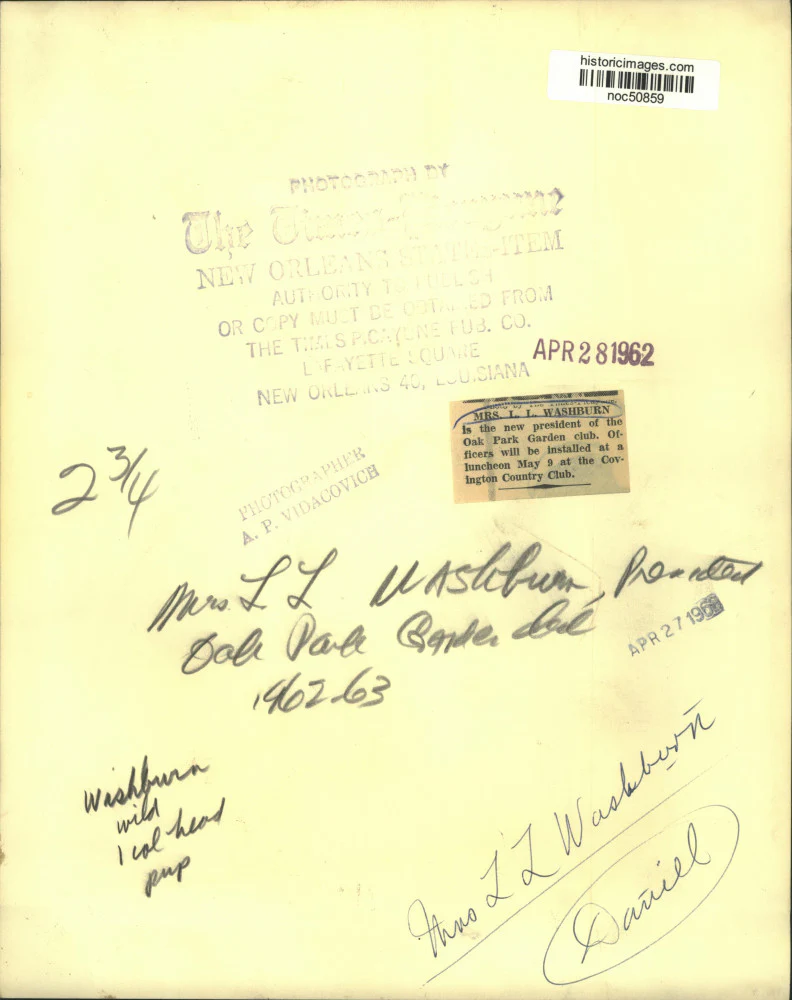 historicimages.com
noc50859
PHOTOGRAPH BY
The Times-Picayune
NEW ORLEANS STATES-ITEM
AUTHORITY TO PUBLISH
OR COPY MUST BE OBTAINED FROM
THE TIMES PICAYUNE PUB. CO.
LAFAYETTE SQUARE
NEW ORLEANS 40, LOUISIANA
APR 28 1962
MRS. L. L. WASHBURN
is the new president of the
Oak Park Garden club. Of-
ficers will be installed at a
luncheon May 9 at the Cov-
ington Country Club.
2 3/4
PHOTOGRAPHER
A. P. VIDACOVICH
Mrs. L L Washburn, President
Oak Park Garden club
1962-63
APR 27 196
Washburn
wild
1 col head
pup
Mrs L L Washburn
Daniel